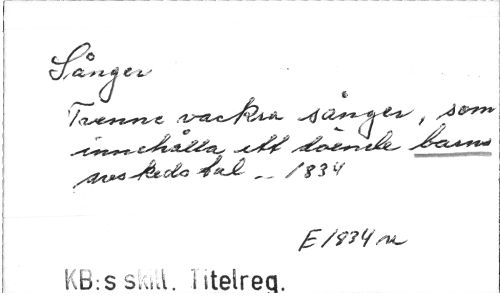 Sånger
Trenne vackra sånger, som
innehålla ett döende barns
avskedstal .. 1834
E 1834 m
KB:s skill. Titelreg.